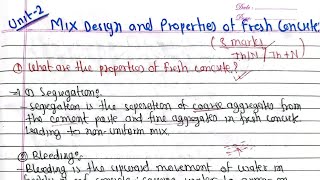 Date :
Unit-2
Mix Design and Properties of Fresh Concrete
(8 marks
Th/N / Th+N)
① What are the properties of fresh concrete?
→ ① Segregation:-
→ segregation is the seperation of coarse aggregates from
the cement paste and fine aggregates in fresh concrete
leading to non-uniform mix.
② Bleeding:-
→ Bleeding is the upward movement of water in